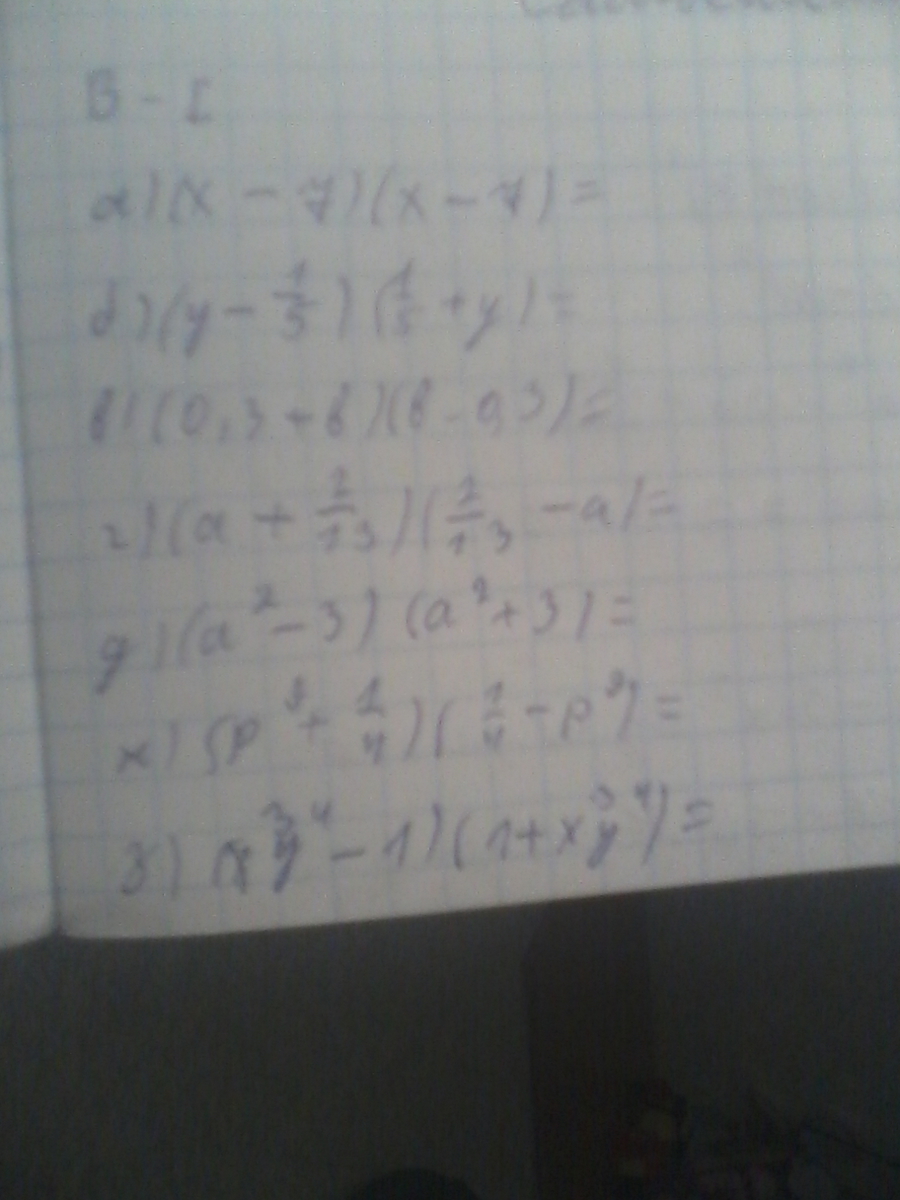 В - I
а) (x - 7)(x - 7) =
б) (y - 1/5)(1/5 + y) =
в) (0,3 + b)(b - 0,3) =
г) (a + 1/13)(1/13 - a) =
д) (a² - 3)(a² + 3) =
ж) (p³ + 1/4)(1/4 - p³) =
з) (x³y⁴ - 1)(1 + x³y⁴) =